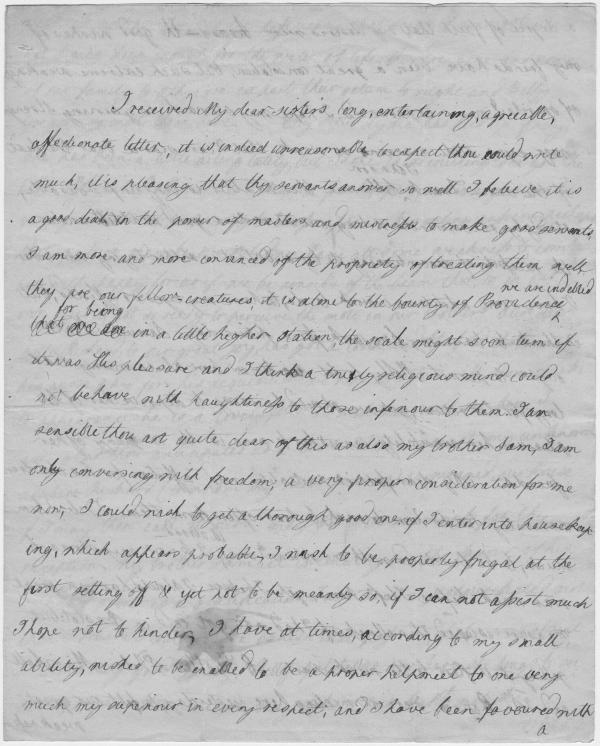 I received My dear sisters long, entertaining, agreeable,
affectionate letter, it is indeed unreasonable to expect thou could write
much, it is pleasing that thy servants answer so well I believe it is
a good deal in the power of masters and mistress to make good servants,
I am more and more convinced of the propriety of treating them well
they are our fellow-creatures, it is alone to the bounty of Providence
we are indebted
for being
in a little higher station, the scale might soon turn if
it was His pleasure and I think a truly religious mind could
not behave with haughtiness to those inferiour to them. I am
sensible thou art quite clear of this as also my brother Sam, I am
only conversing with freedom; a very proper consideration for me
now, I could wish to get a thorough good one, if I enter into housekeep
ing, which appears probable, I wish to be properly frugal at the
first setting off & yet not to be meanly so, if I can not assist much
I hope not to hinder, I have at times, according to my small
ability, wished to be enabled to be a proper helpmeet to one very
much my superiour in every respect; and I have been favoured with
a